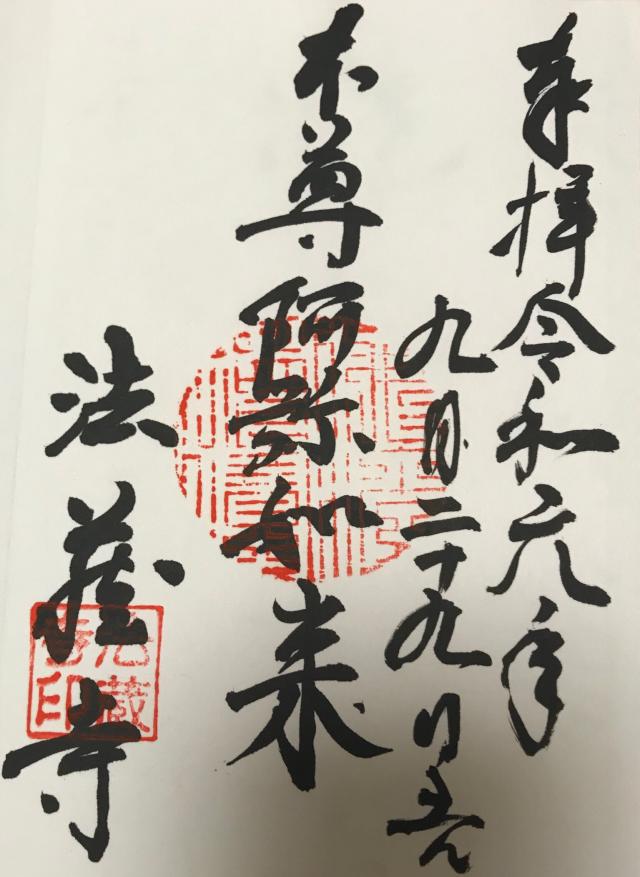 奉拝 令和元年
九月二十九日
本尊阿弥如来
法蔵寺